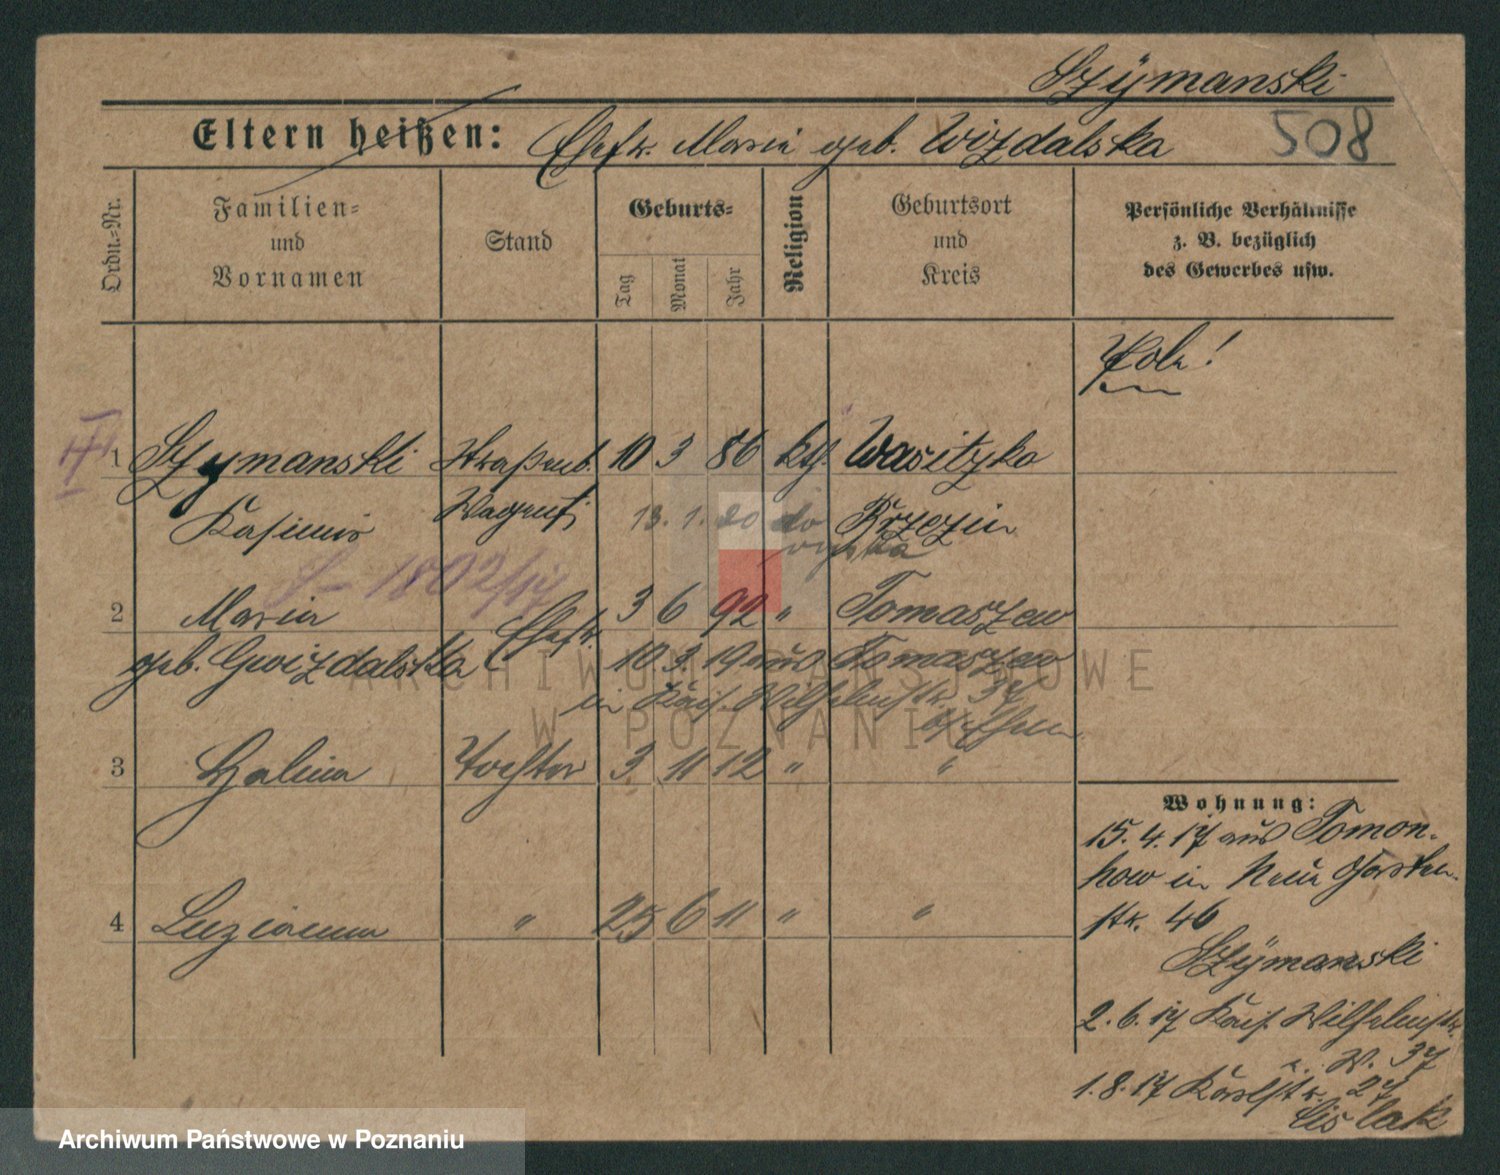 Szÿmanski
Eltern heißen: Ehefr. Maria geb. Wizdalska
508
Ordn.-Nr.
Familien-
und
Vornamen
Stand
Geburts-
Tag
Monat
Jahr
Religion
Geburtsort
und
Kreis
Persönliche Verhältnisse
z. B. bezüglich
des Gewerbes usw.
Pole!
1 Szymanski Straßenb. 10 3 86 kth. Wasitzko
Kasimir Wagenf. 13. 1. 20 do Krzezin
L- 1802/17
2 Maria Ehefr. 3 6 92 " Tomaszew
geb. Gwizdalska 10 3. 19 aus Tomaszew
in Kais. Wilhelmstr. 37
3 Halina Tochter 3 11 12 " "
4 Luzianna " 25 6 11 " "
Wohnung:
15. 4. 17 aus Tomon-
kow in Neue Garten-
str. 46
Szÿmanski
2. 6. 17 Kais. Wilhelmstr.
37
1. 8. 17 27
ARCHIWUM PAŃSTWOWE
W POZNANIU
Archiwum Państwowe w Poznaniu